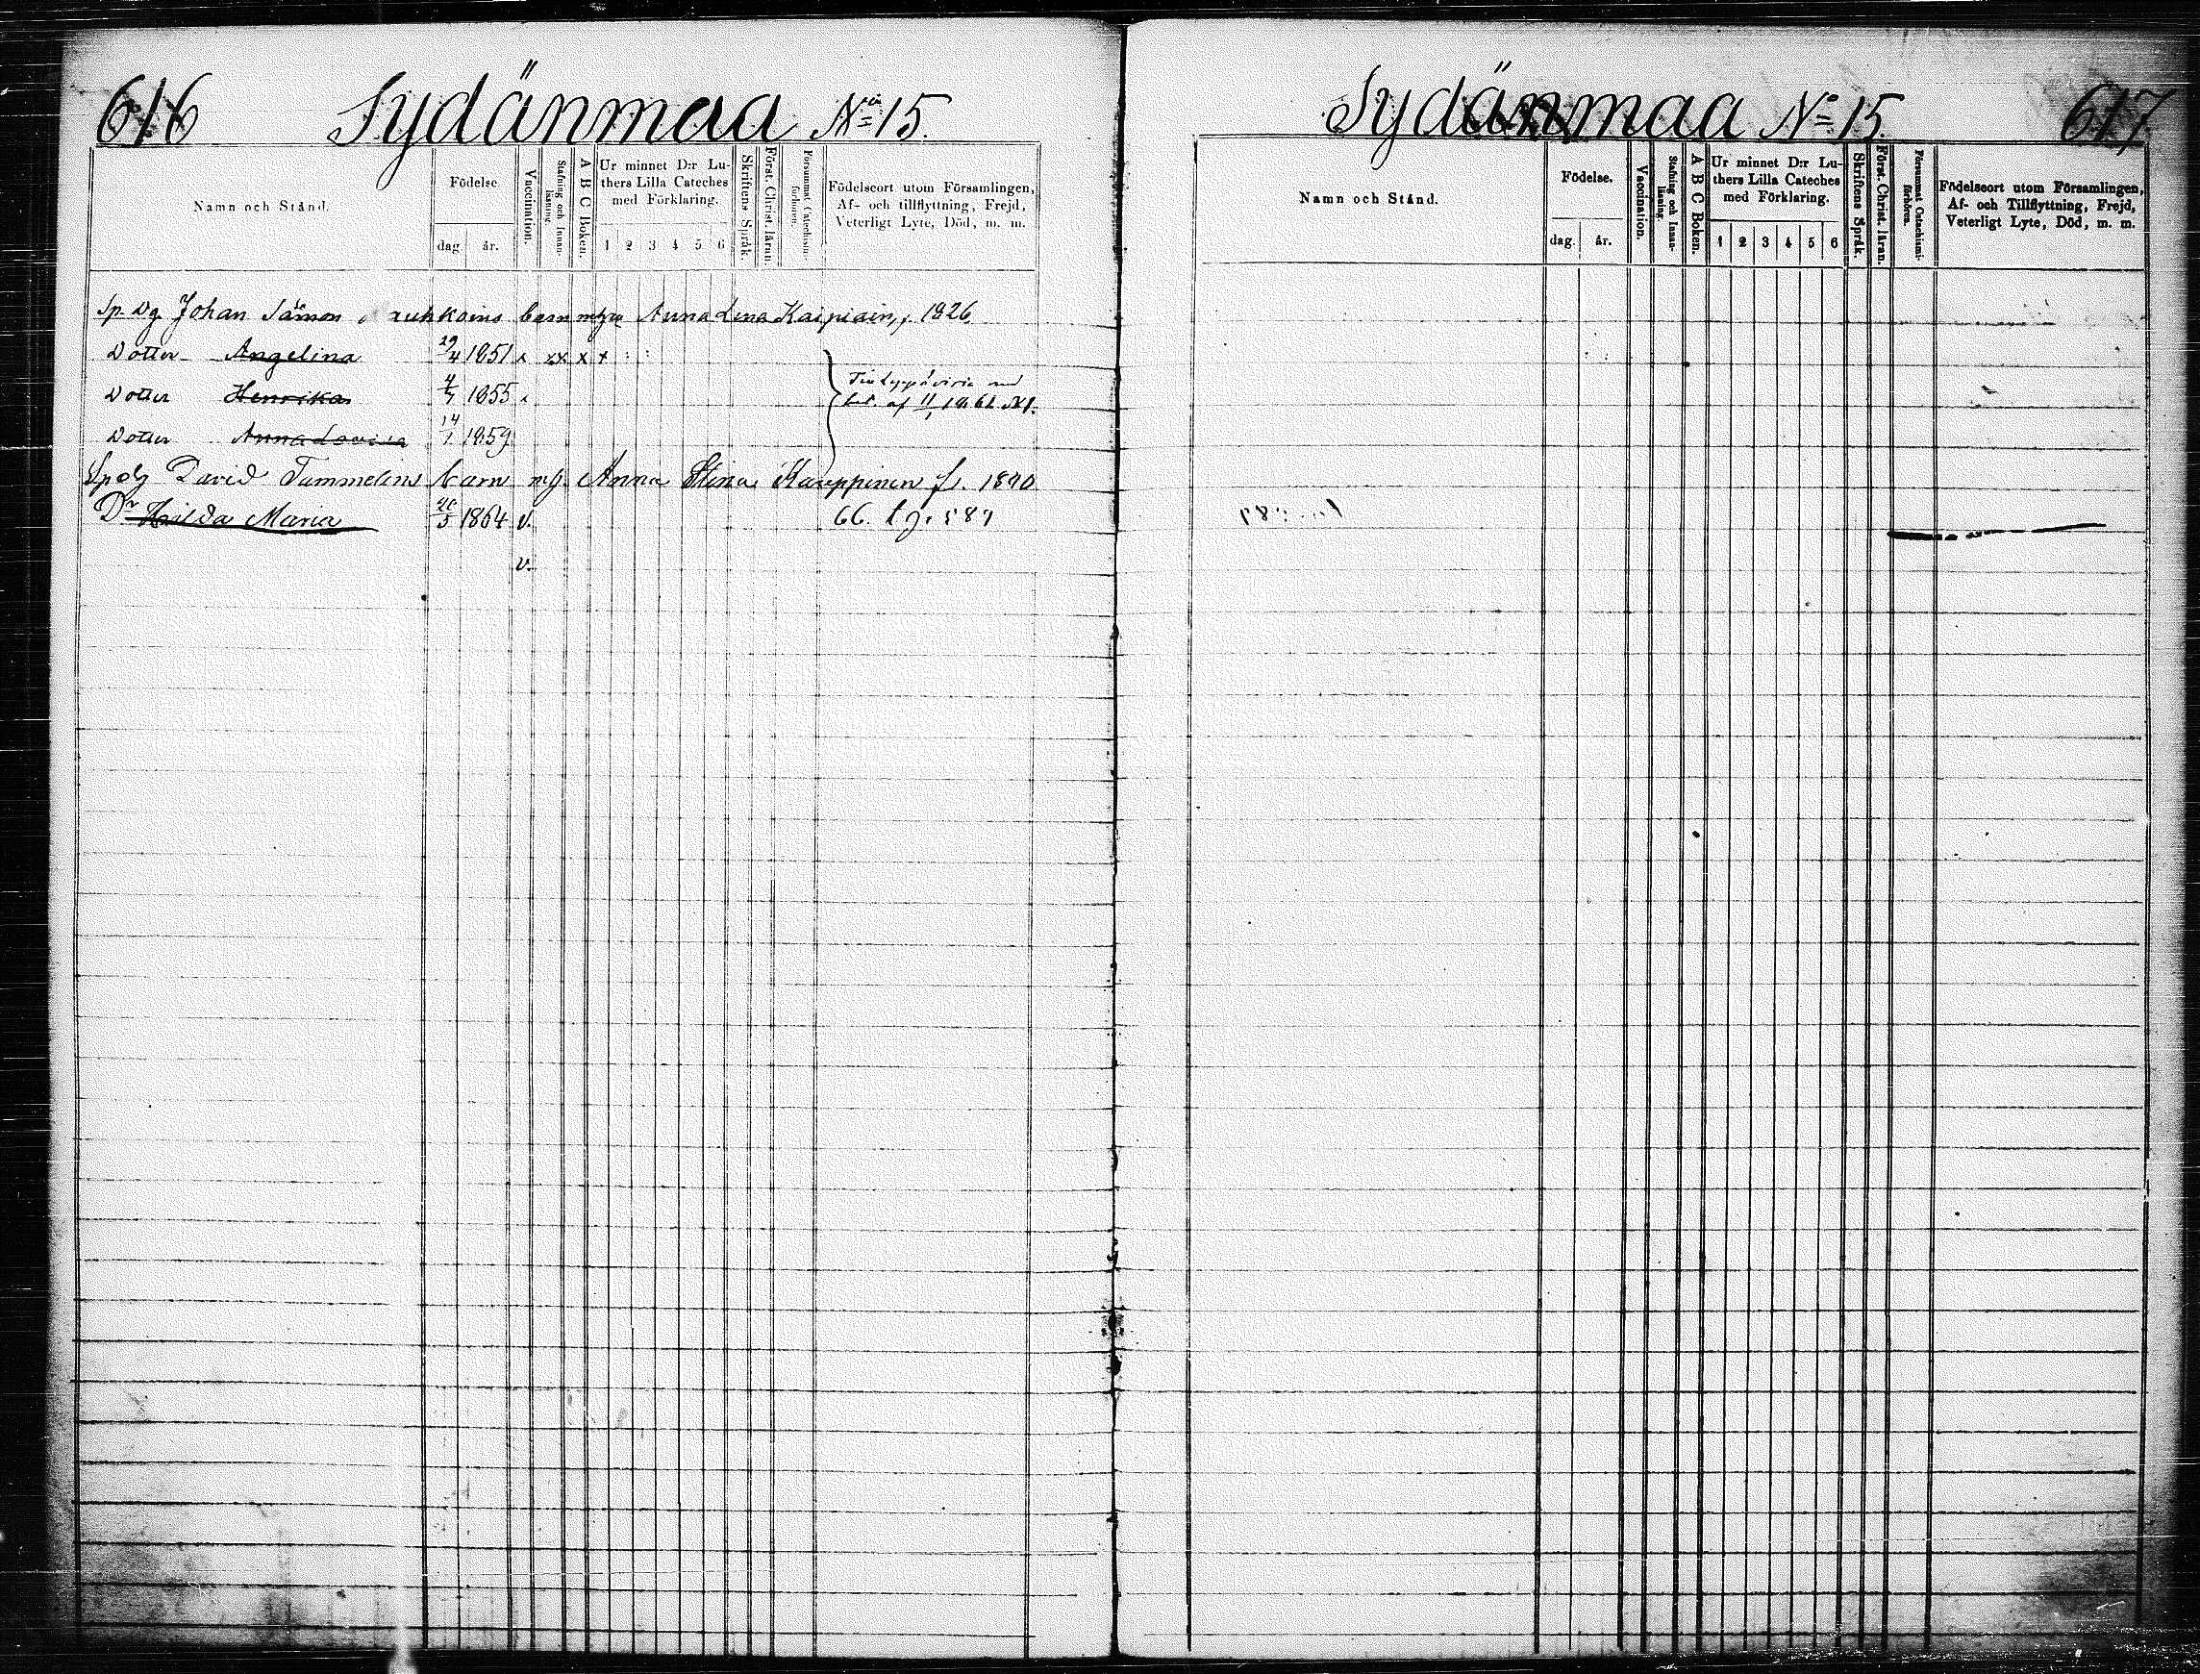 616 Sydänmaa No 15.
Namn och Stånd.
Födelse.
dag. år.
Vaccination.
Stafning och Innanläsning.
A B C Boken.
Ur minnet D:r Luthers Lilla Cateches med Förklaring.
1 2 3 4 5 6
Skriftens Språk.
Först. Christ. läran.
Försummat Catechismi-förhören.
Födelseort utom Församlingen,
Af- och tillflyttning, Frejd,
Veterligt Lyte, Död, m. m.
Sp. Dg Johan barn Anna Lena 1826
Dotter Angelina 29/4 1851 x xx x x
Dotter Henrika 4/7 1855
af 11/1 1861 No 1.
Dotter Anna Lovisa 14/1 1859
Spdg David Tammelins barn m. Anna Stina Kauppinen f. 1840
Dr Hilda Maria 1864 v. 66.
v.
Sydänmaa No 15. 617
Namn och Stånd.
Födelse.
dag. år.
Vaccination.
Stafning och Innanläsning.
A B C Boken.
Ur minnet D:r Luthers Lilla Cateches med Förklaring.
1 2 3 4 5 6
Skriftens Språk.
Först. Christ. läran.
Försummat Catechismi-förhören.
Födelseort utom Församlingen,
Af- och Tillflyttning, Frejd,
Veterligt Lyte, Död, m. m.